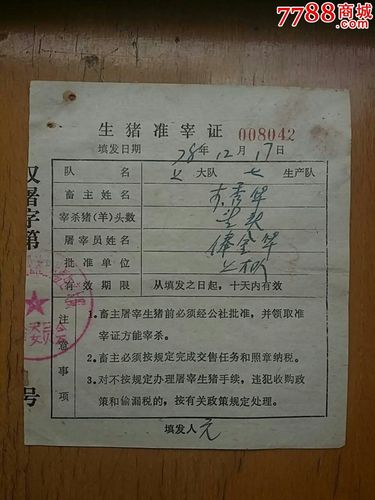 7788商城
.com
生猪准宰证 008042
填发日期 78年12月17日
队名 上大队 七生产队
畜主姓名
宰杀猪(羊)头数
屠宰员姓名
批准单位
有效期限 从填发之日起，十天内有效
注意事项
1.畜主屠宰生猪前必须经公社批准，并领取准
宰证方能宰杀。
2.畜主必须按规定完成交售任务和照章纳税。
3.对不按规定办理屠宰生猪手续，违犯收购政
策和偷漏税的，按有关政策规定处理。
填发人
屠字第
号